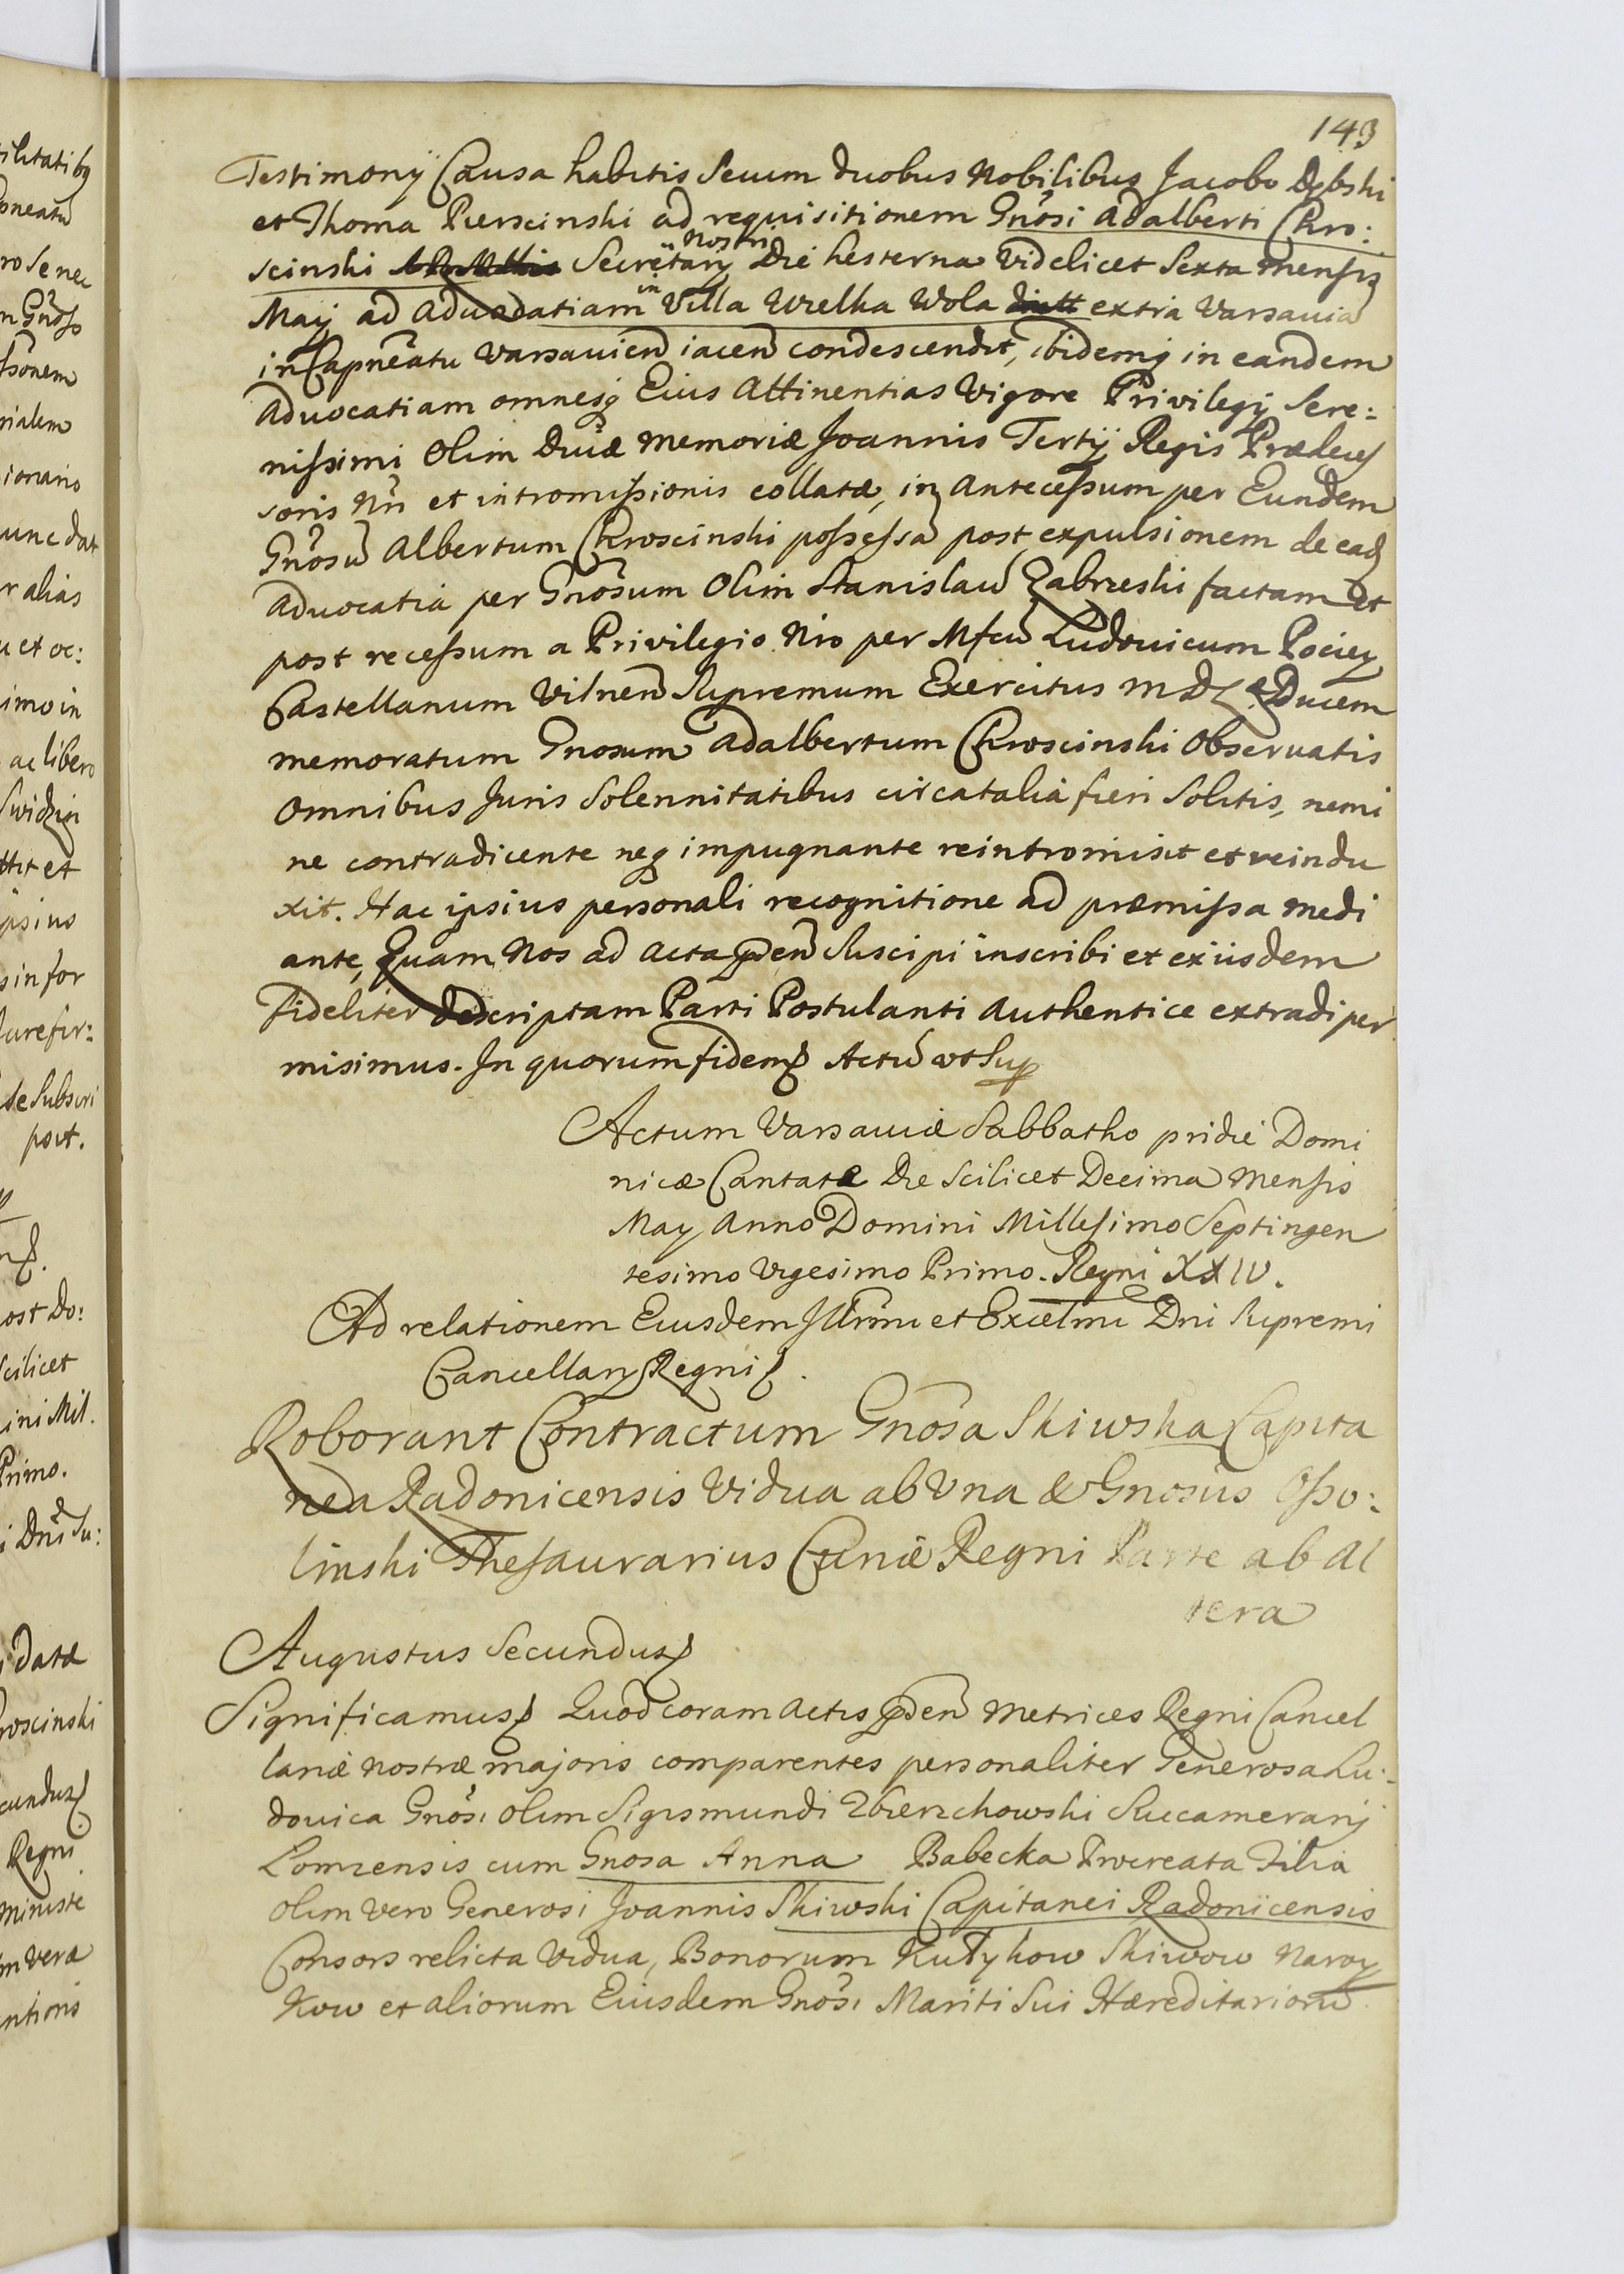 143
Testimonÿ Causa habitis Secum duobus Nobilibus Jacobo Dębski
et Thoma Pierscinski ad requisitionem Gnõsi Adalberti Chro:
scinski Secretarÿ Nostri Die hesterna Videlicet Sexta Mensis
Maÿ ad Advocatiam in Villa Wielka Wola extra Varsaviã
in Capnẽatu Varsavieñ iaceñ condescendit, ibidemq in eandem
Advocatiam omnesq Eius Attinentias Vigore Privilegÿ Sere:
nissimi Olim Divæ Memoriæ Joannis Tertÿ Regis Prædeces
soris Nri et intromissionis collatæ, in Antecessum per Eundem
Gnõsũ Albertum Chroscinski possessã post expulsionem de ead
Advocatia per Gnõsum Olim Stanislaũ Zabrzeski factam et
post recessum a Privilegio Nro per Mfcũ Ludovicum Pociey
Castellanum Vilneñ Supremum Exercitus M D L Ducem
memoratum Gnosum Adalbertum Chroscinski Observatis
Omnibus Juris Solennitatibus circa talia fieri Solitis, nemi
ne contradicente neq impugnante reintromisit et reindu
xit. Hac ipsius personali recognitione ad præmissa medi
ante, Quam Nos ad Acta pñeñ Suscipi inscribi et ex iisdem
Fideliter descriptam Parti Postulanti Authentice extradi per
misimus. In quorum fidem Actũ ut Sup
Actum Varsaviæ Sabbatho pridie Domi
nicæ Cantatæ Die Scilicet Decima Mensis
Maÿ Anno Domini Millesimo Septingen
tesimo Vigesimo Primo. Regni XXIV.
Ad relationem Eiusdem Illrimi et Excelmi Dni Supremi
Cancellarÿ Regni
Roborant Contractum Gnõsa Skiwska Capita
nea Radonicensis Vidua ab Una & Gnosus Osso:
linski Thesaurarius Curiæ Regni Parte ab Al
tera
Augustus Secundus
Significamus Quod coram Actis pñeñ Metrices Regni Cancel
lariæ Nostræ majoris comparentes personaliter Generosa Lu:
dovica Gnõsi olim Sigismundi Zbierzchowski Succamerarÿ
Lomzensis cum Gnosa Anna Babecka Procreata Filia
olim vero Generosi Joannis Skiwski Capitanei Radonicensis
Consors relicta Vidua, Bonorum Kutyłow Skiwow Naroy
Kow et aliorum Eiusdem Gnõsi Mariti Sui Hæreditariorũ